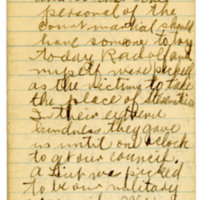 personal of the
court martial should
have someone to try
today Radolf and
myself were picked
as the victims to take
the place of
In their extreme
kindness they gave
us until one o'clock
to get our council.
A Lieut was picked
to be our military